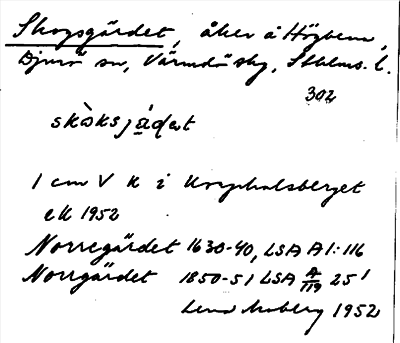 Skogsgärdet, åker å Högbenn,
Djurö sn, Värmdö skg, Sthlms. l.
302
skàksjáḍət
1 cm V K i Korphalsberget
ek 1952
Norregärdet 1630-40, LSA A1:116
Norrgärdet 1850-51 LSA A/119 25¹
Moberg 1952